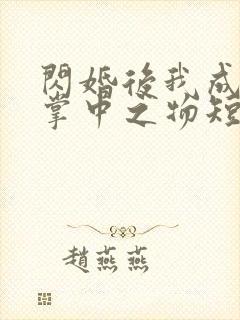 閃婚後我成
掌中之物短
趙燕燕